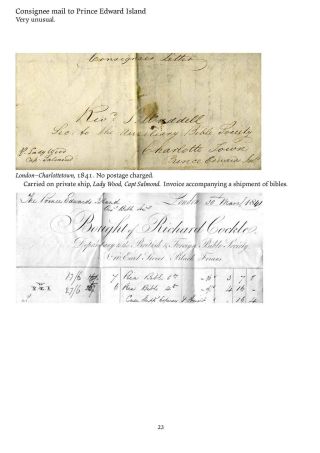 Consignee mail to Prince Edward Island
Very unusual.
Consignees Letter
Revd. J. Waddell
Sec. to the Auxiliary Bible Society
Charlotte Town
Prince Edward Isd
P. Lady Wood
Cap. Salmond
London–Charlottetown, 1841. No postage charged.
Carried on private ship, Lady Wood, Capt Salmond. Invoice accompanying a shipment of bibles.
The Prince Edwards Island
London 30 March 1841
Bought of Richard Cockle
Depositary to the British & Foreign Bible Society
Earl Street Black Friars
17/6
7
Bible
3 7
27/6
6
Bible
4 16 –
16 4
23